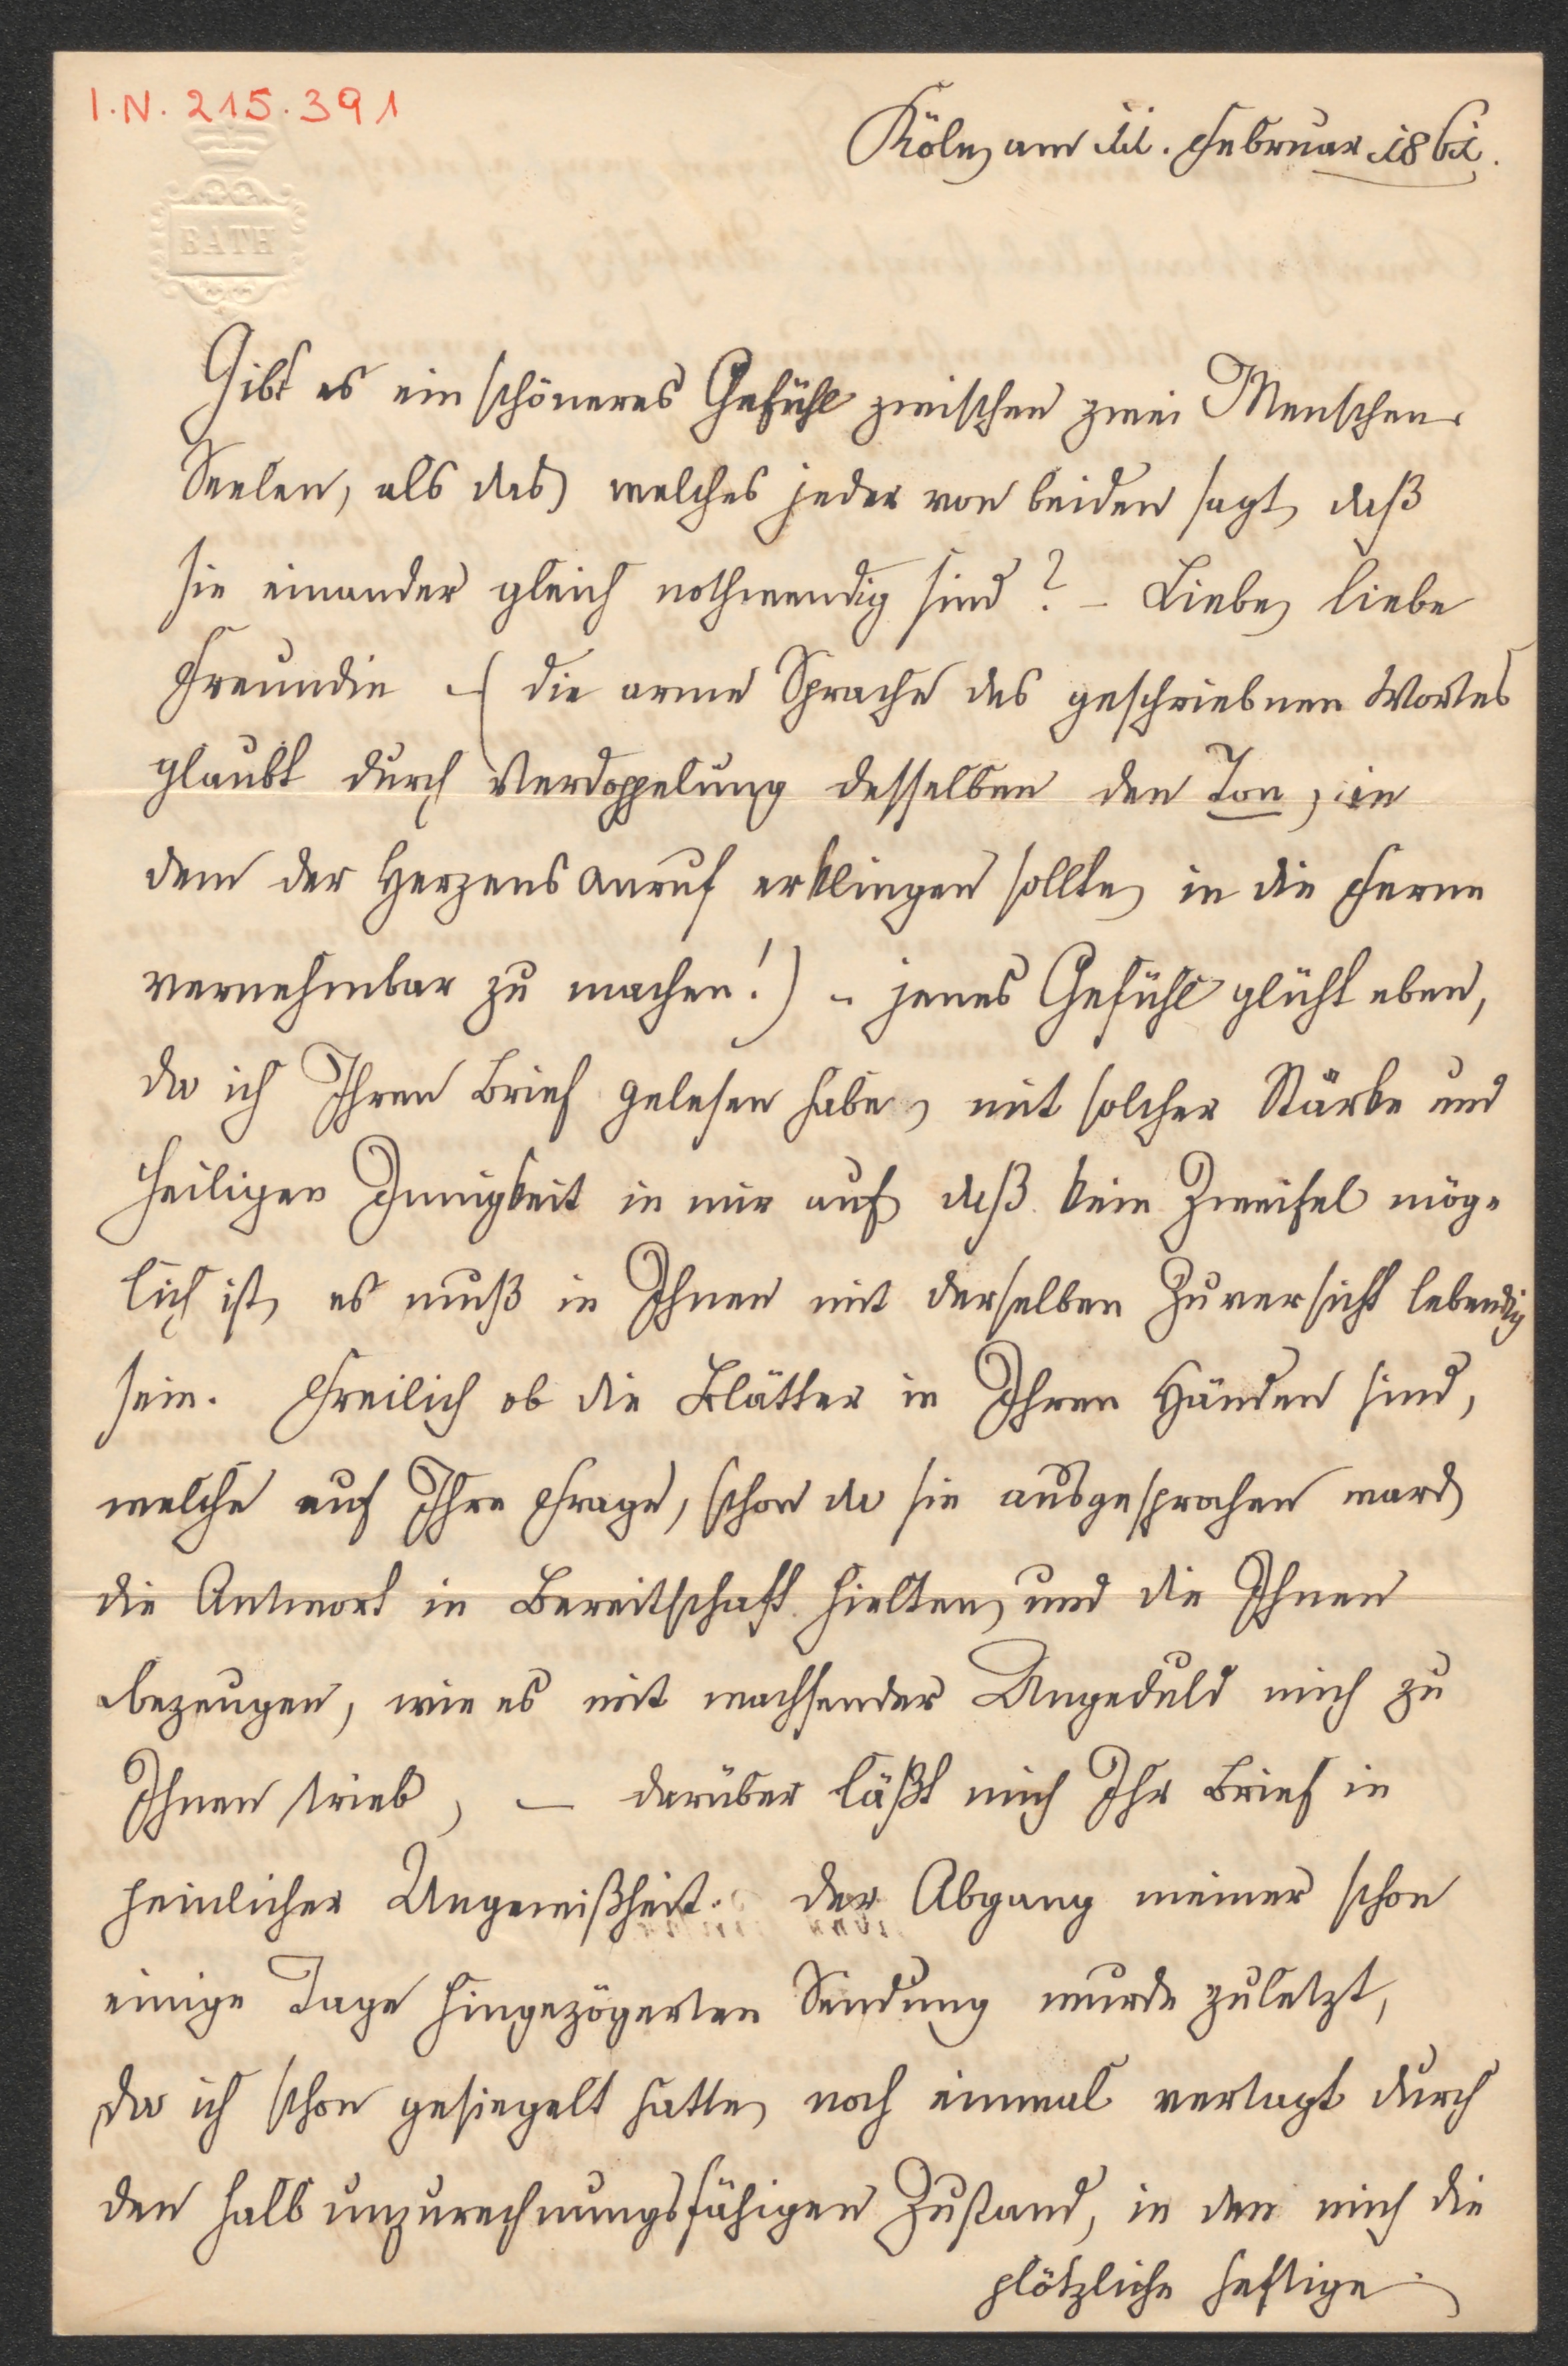 I.N. 215.391
Köln, am 11. Februar 1861.
BATH
Gibt es ein schöneres Gefühl zwischen zwei Menschen-
Seelen, als das, welches jeder von beiden sagt, daß
sie einander gleich nothwendig sind? – Liebe, liebe
Freundin – (die arme Sprache des geschriebnen Wortes
glaubt durch Verdoppelung desselben den Ton, in
dem der Herzensanruf erklingen sollte, in die Ferne
vernehmbar zu machen!) – jenes Gefühl glüht eben,
da ich Ihren Brief gelesen habe, mit solcher Stärke und
heiligen Innigkeit in mir auf, daß kein Zweifel mög-
lich ist, es muß in Ihnen mit derselben Zuversicht lebendig
sein. Freilich ob die Blätter in Ihren Händen sind,
welche auf Ihre Frage, schon da sie ausgesprochen ward,
die Antwort in Bereitschaft hielten, und die Ihnen
bezeugen, wie es mit wachsender Ungeduld mich zu
Ihnen trieb, – darüber läßt mich Ihr Brief in
peinlicher Ungewißheit. Der Abgang meiner schon
einige Tage hingezögerten Sendung wurde zuletzt,
da ich schon gesiegelt hatte, noch einmal vertagt durch
den halb unzurechnungsfähigen Zustand, in den mich die
plötzliche heftige